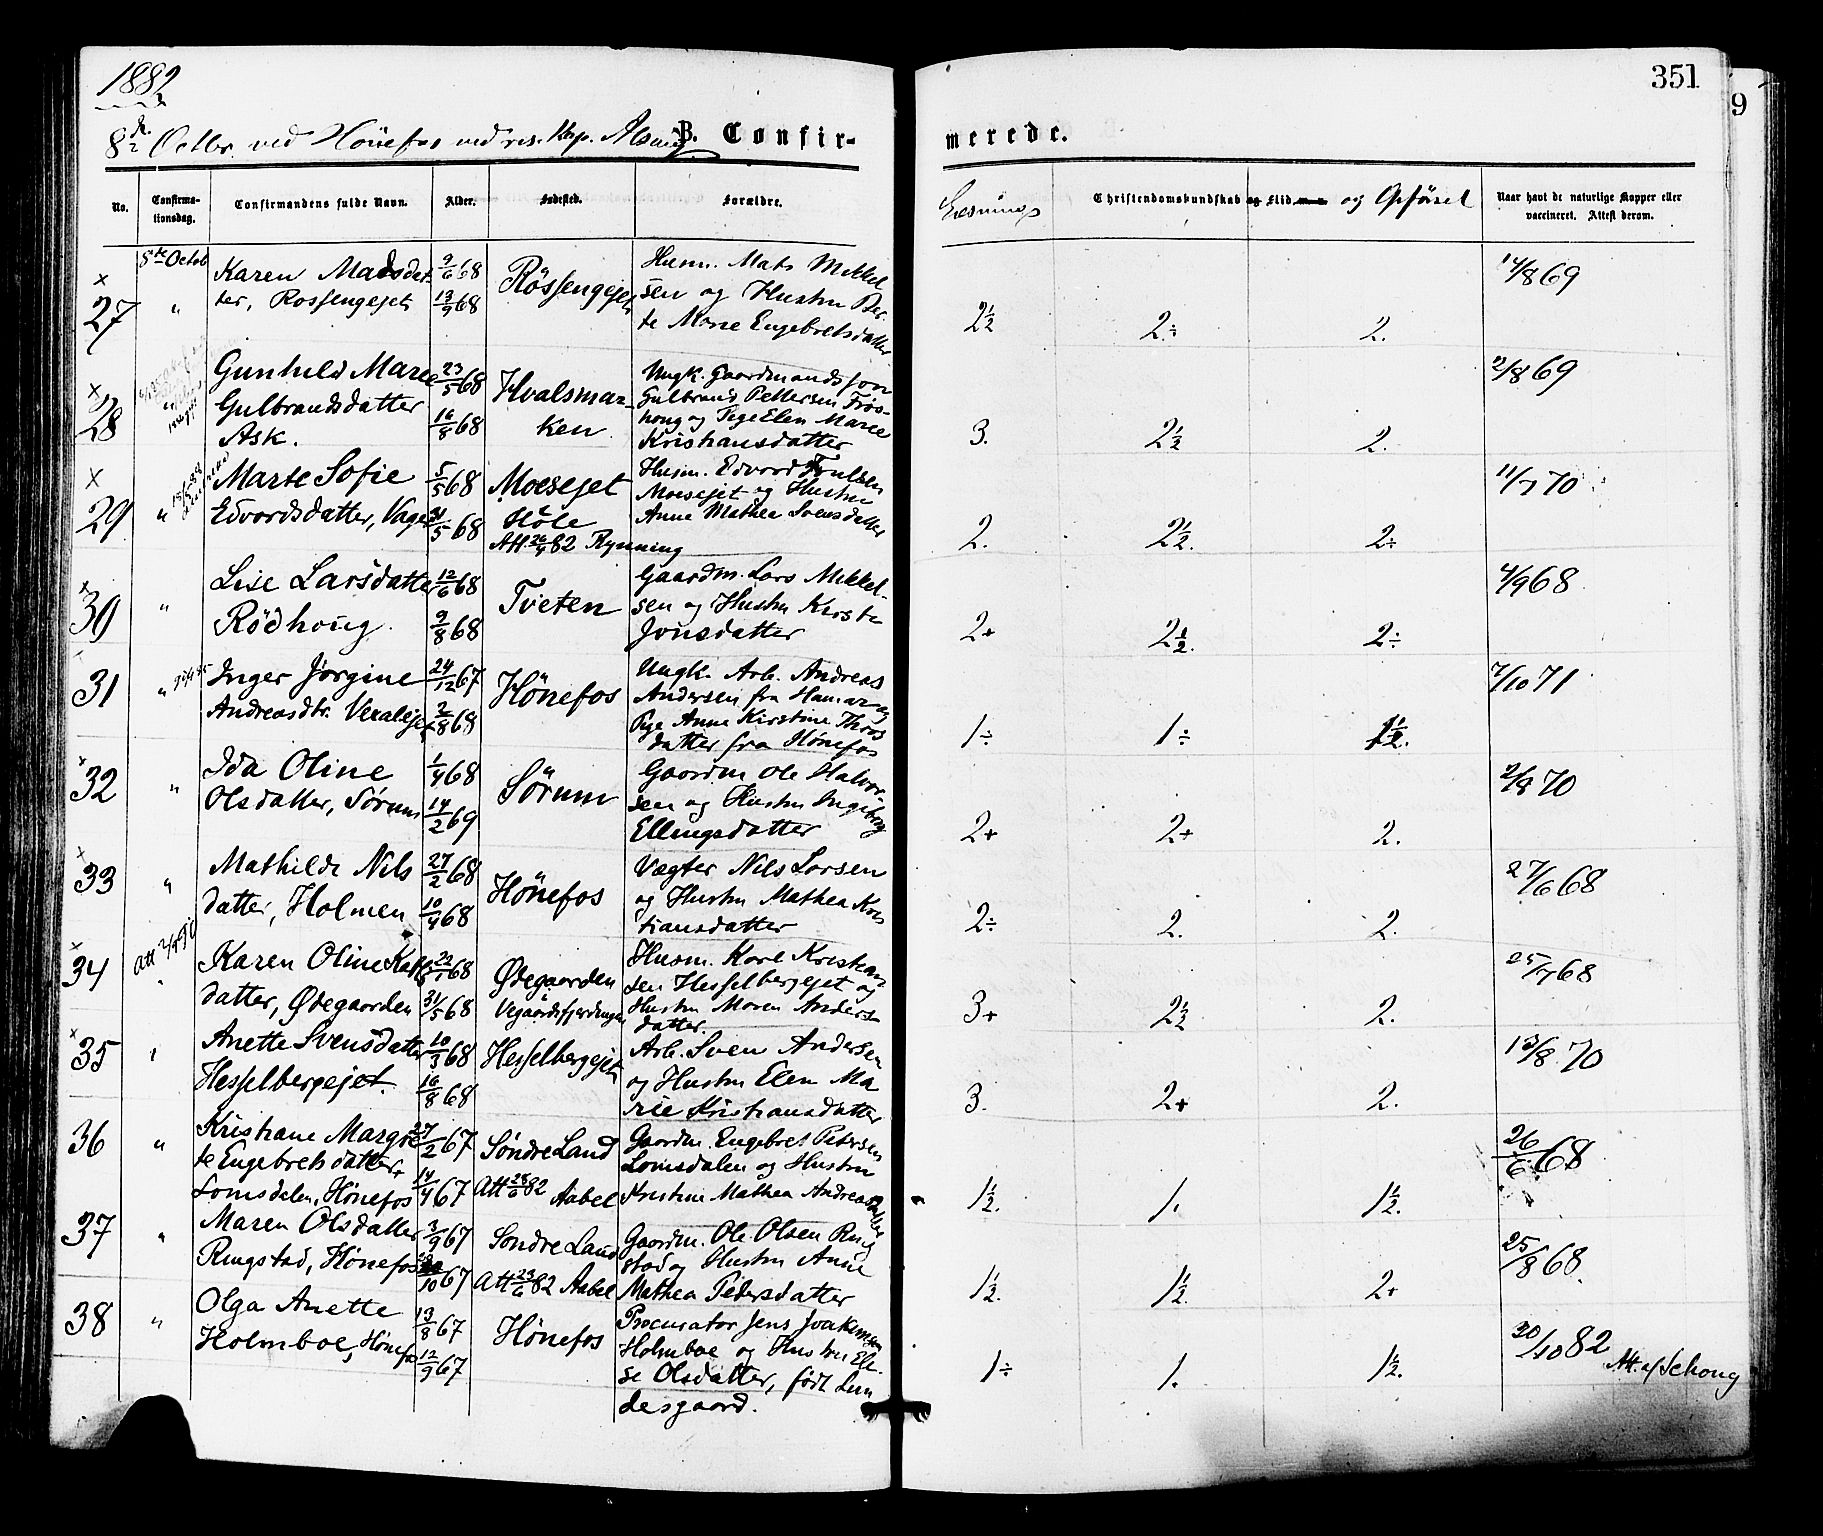 1882
351
9
8de Octbr. ved Hönefos ved res. Kap. B. Confir-
merede.
No.
Confirma-
tionsdag.
Confirmandens fulde Navn.
Alder.
Fødested.
Forældre.
Læsning
Christendomskundskab og Flid og Opførsel
Naar havt de naturlige Kopper eller
vaccineret. Attest derom.
x 27
8de Octob
"
Karen Madsdat-
ter, Rossengejet
9/6 68
13/9 68
Rössengejet
Husm. Mats Mikkel
sen og Hustru Ber-
te Marie Engebretsdatter
2½
2÷
2.
14/8 69
x 28
"
Gunhild Marie
Gulbrandsdatter
Ask.
23/5 68
16/8 68
Hvalsmar-
ken
Ungk. Gaardmandsson
Gulbrand Pettersen Frøs-
houg og Pige Elen Marie
Kristiansdatter
3.
2½
2.
2/8 69
x 29
"
Marte Sofie
Edvardsdatter, Vager
5/5 68
31/5 68
Moesejet
Hole
Att. 26/4 82 Rynning
Husm. Edvard Trulsen
Moesejet og Hustru
Anne Mathea Svensdatter
2.
2½.
2÷
11/7 70
x 30
"
Lise Larsdatter
Rødhoug.
12/6 68
9/8 68
Tveten
Gaardm. Lars Mikkel-
sen og Hustru Kirsti
Jonsdatter
2+
2½.
2÷
4/9 68
31
"
Inger Jørgine
Andreasdtr. Veralejet
24/12 67
2/8 68
Hönefos
Ungk. Arb. Andreas
Andersen fra Hamar og
Pige Anne Kirstine Thros
datter fra Hönefos
1÷
1÷
1½.
7/10 71
x 32
"
Ida Oline
Olsdatter, Sørum
1/4 68
14/2 69
Sörum
Gaardm Ole Halvor-
sen og Hustru Ingeborg
Ellingsdatter
2+
2+
2.
2/8 70
x 33
"
Mathilde Nils
datter, Holmen
27/2 68
10/4 68
Hönefos
Vægter Nils Larsen
og Hustru Mathea Kris
tiansdatter
2÷
2.
2.
27/6 68
x 34
"
Karen Oline Karls
datter, Ødegaarden
22/1 68
31/5 68
Ødegaarden
Vegårdsfjerdingen
Husm. Karl Kristian
sen Hesselbergejet og
Hustru Maren Anders-
datter.
3+
2½
2.
25/7 68
x 35
"
Anette Svensdatter
Hesselbergejet.
10/3 68
16/8 68
Hesselbergejet
Arb. Sven Andersen
og Hustru Elen Ma
rie Kristiansdatter
3.
2+
2.
13/8 70
36
"
Kristiane Margre
te Engebretsdatter
Lomsdalen, Hönefos
27/2 67
14/4 67
Söndre Land
Att 28/6 82 Aabel
Gaardm. Engebret Petersen
Lomsdalen og Hustru
Kristine Mathea Andreasdatter
1½.
1.
1½.
26/6 68
37
"
Maren Olsdatter
Ringstad, Hönefos
3/9 67
20/10 67
Söndre Land
Att 23/6 82 Aabel
Gaardm. Ole Olsen Ring
stad og Hustru Anne
Mathea Pedersdatter
1½.
1½.
2+
25/8 68.
38
"
Olga Anette
Holmboe, Hönefos
13/8 67
12/9 67
Hönefos
Procurator Jens Joakimsen
Holmboe og Hustru Eli-
se Olsdatter, født Lun
desgaard.
1÷
1.
1½.
30/10 82
Att. af Schong